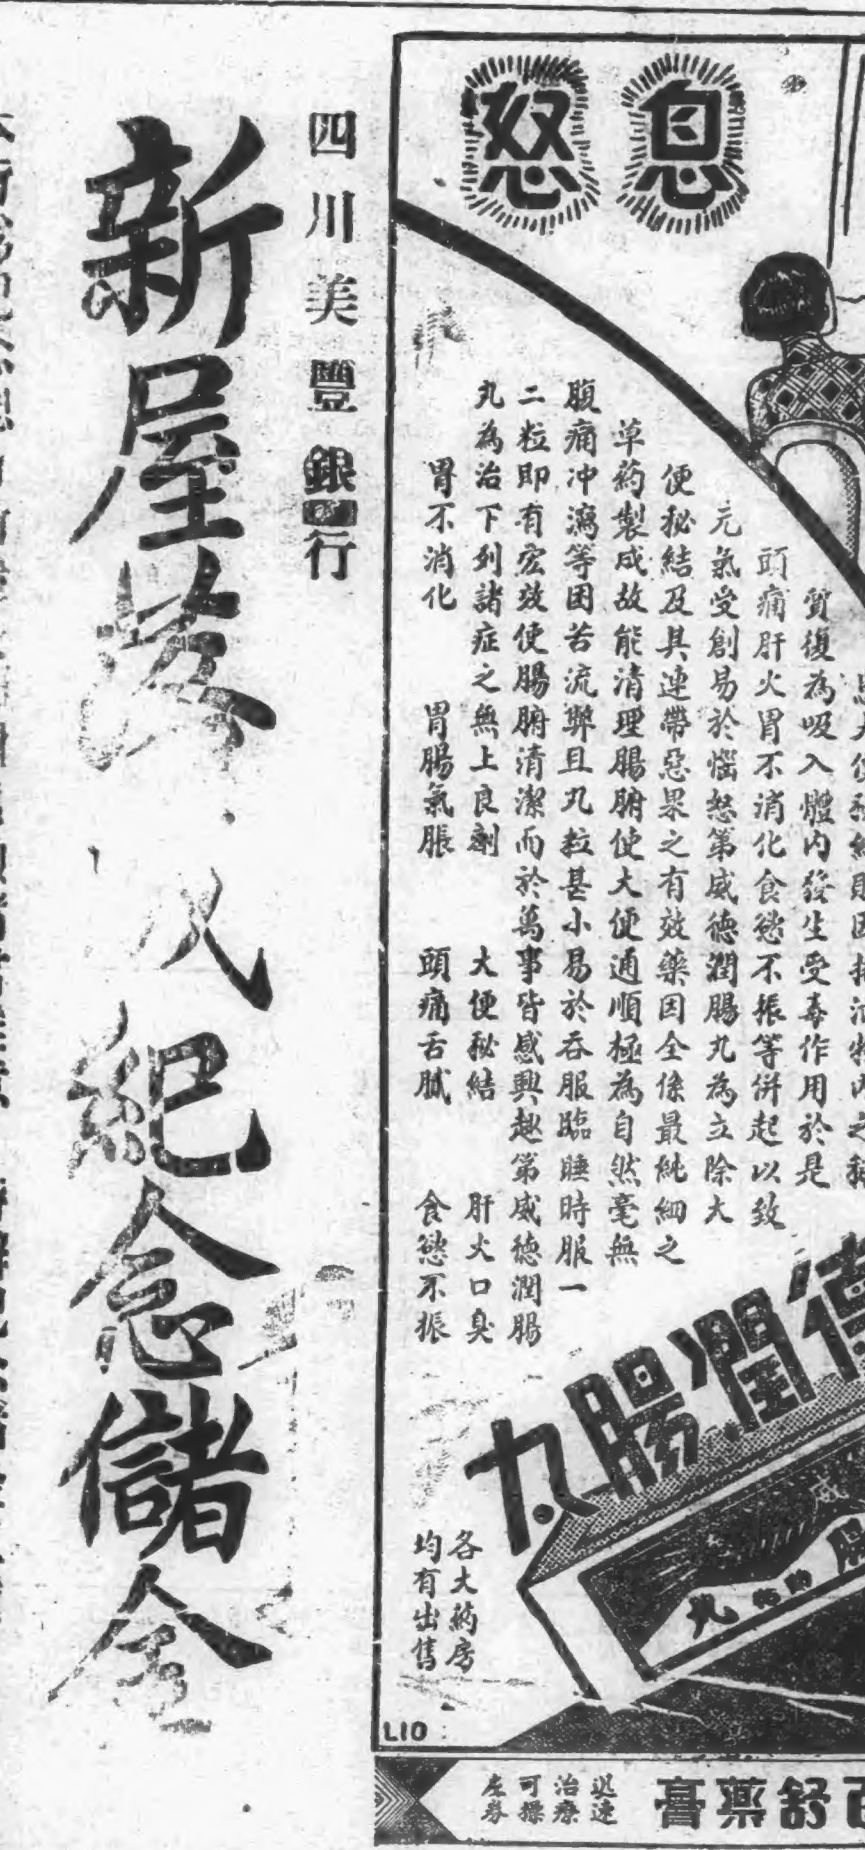 息怒
質復為吸入體內發生受毒作用於是
頭痛肝火胃不消化食慾不振等併起以致
元氣受創易於惱怒第威德潤腸丸為立除大
便秘結及其連帶惡果之有效藥因全係最純細之
草药製成故能清理腸腑使大便通順極為自然毫無
腹痛冲瀉等困苦流弊且丸粒甚小易於吞服臨睡時服一
二粒即有宏效使腸腑清潔而於萬事皆感興趣第威德潤腸
丸為治下列諸症之無上良劑
大便秘結
肝火口臭
胃不消化
胃腸氣脹
頭痛舌膩
食慾不振
德潤腸丸
各大药房
均有出售
L10
舒藥膏
迅速
治療
可操
左券
四川美豐銀行
新屋落成紀念儲金